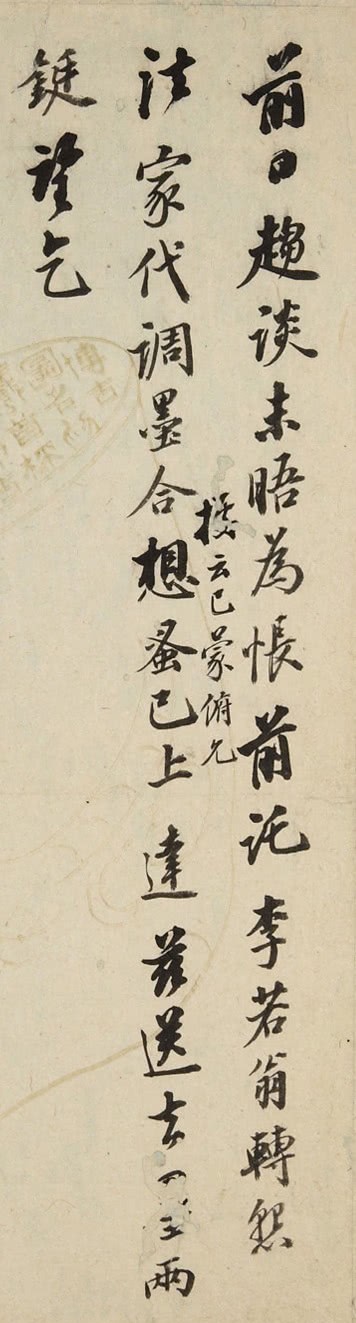 前日趨談未晤為悵前託李若翁轉懇
據云已蒙俯允
法家代調墨合想蚤已上達茲送去兩
錠望乞
博古